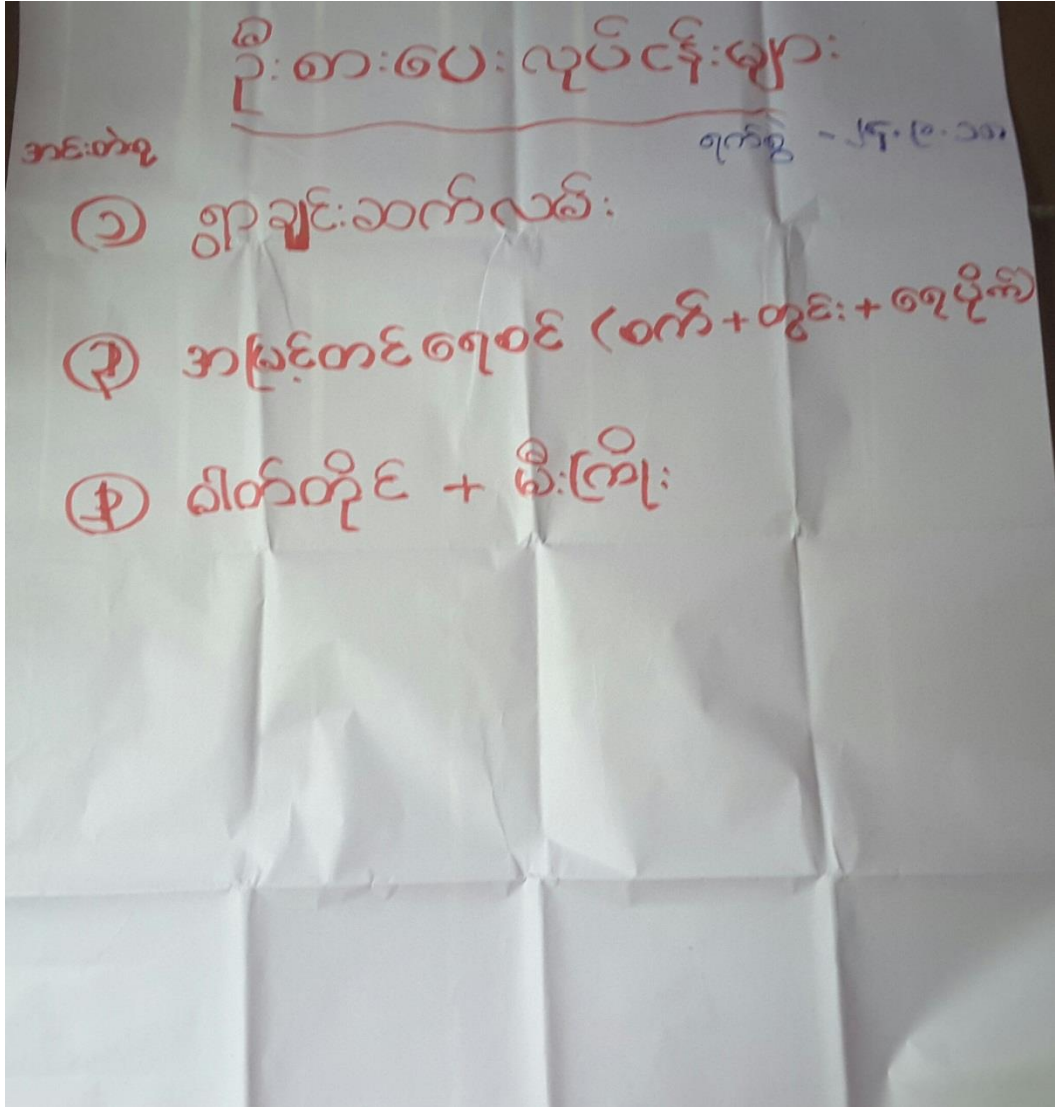 ဦးစားပေးလုပ်ငန်းများ
အင်းတဲရွာ
ရက်စွဲ -
၁ ရွာချင်းဆက်လမ်း
၂ အမြင့်တင်ရေစင် (စက်+တွင်း+ရေပိုက်)
၃ ဓါတ်တိုင် + မီးကြိုး